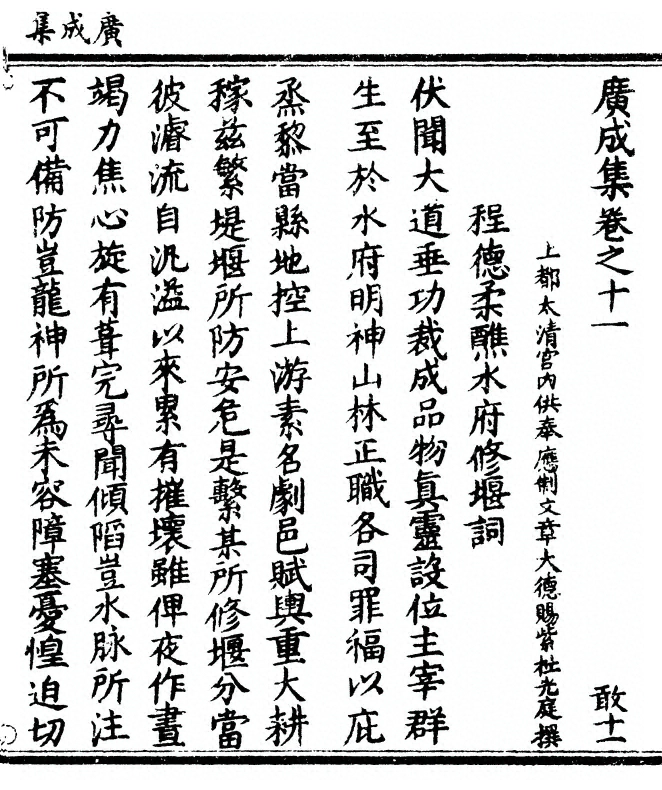 廣成集
廣成集卷之十一 敢十一
上都太清宮內供奉應制文章大德賜紫杜光庭撰
程德柔醮水府修堰詞
伏聞大道垂功裁成品物真靈設位主宰群
生至於水府明神山林正職各司罪福以庇
烝黎當縣地控上游素名劇邑賦輿重大耕
稼茲繁堤堰所防安危是繫某所修堰分當
彼濬流自汎溢以來累有摧壞雖俾夜作晝
竭力焦心旋有葺完尋聞傾陷豈水脉所注
不可備防豈龍神所為未容障塞憂惶迫切